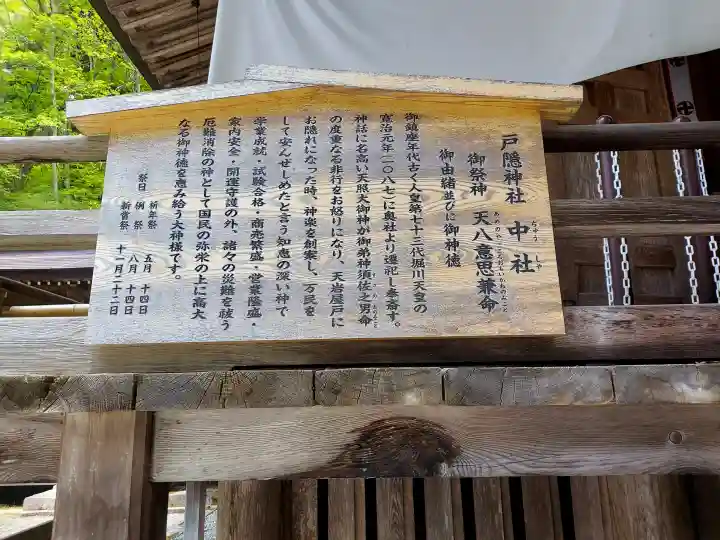 戸隠神社 中社
ちゅう しゃ
御祭神 天八意思兼命
あめのやごころおもいかねのみこと
御由緒並びに御神徳
御鎮座年代古く人皇第七十三代堀川天皇の
寛治元年一〇八七に奥社より遷祀し奉斎す。
神話に名高い天照大御神が御弟神須佐之男命
の度重なる非行をお怒りになり、天岩屋戸に
お隠れになった時、神楽を創案し、万民を
して安んぜしめたと言う知恵の深い神で
学業成就・試験合格・商売繁盛・営業隆盛・
家内安全・開運守護の外、諸々の災難を祓う
厄難消除の神として国民の弥栄の上に高大
なる御神徳を恵み給う大神様です。
祭日 祈年祭 五月 十四日
例祭 八月 十四日
新嘗祭 十一月二十二日